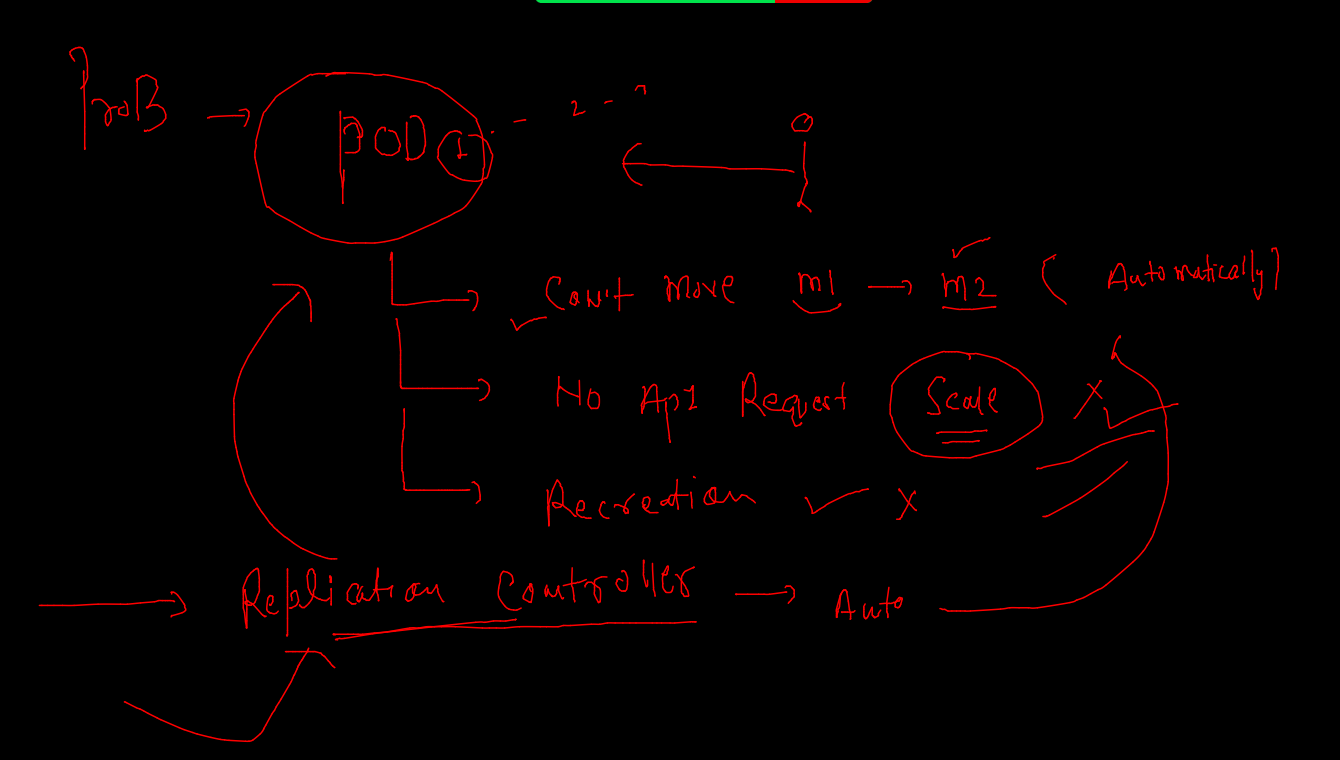 ProB → POD 1 - 2 -
Can't Move M1 → M2 (Automatically)
No Api Request Scale X
Recreation ✓ X
→ Replication Controller → Auto